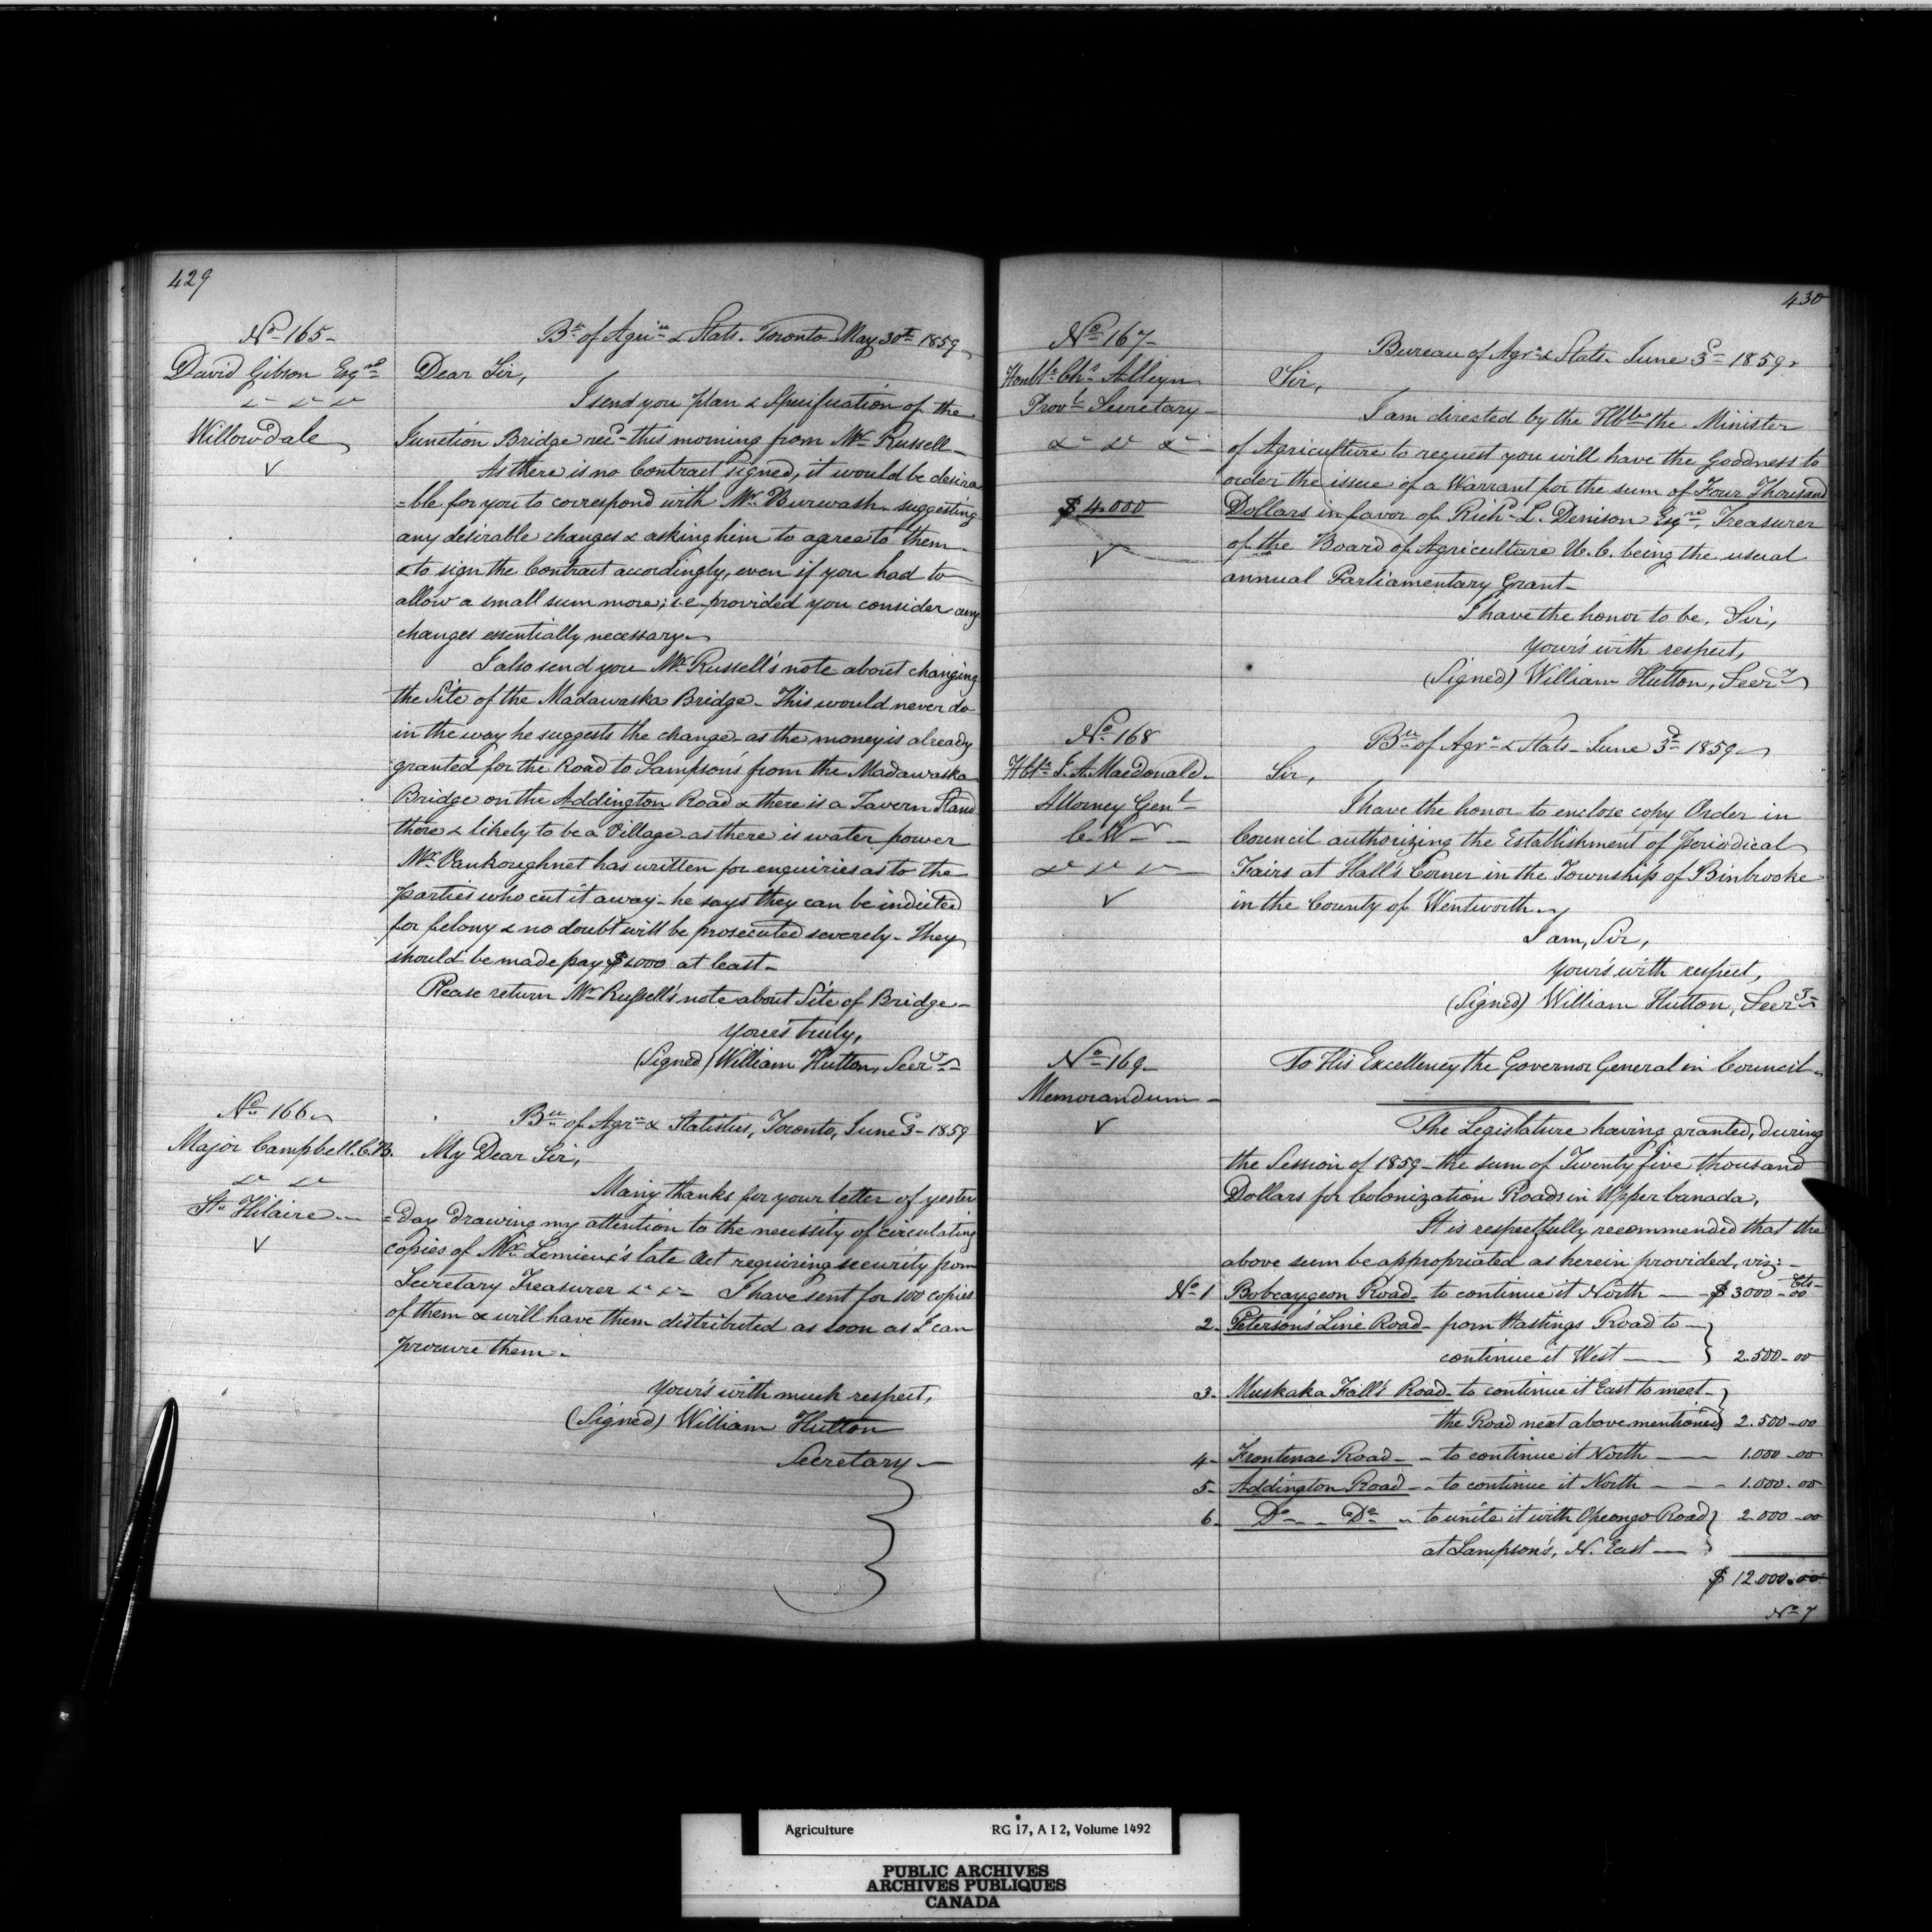 429
No 165-
David Gibson Esqre
&c &c &c
Willowdale
Bu of Agrire & Stats. Toronto May 30th 1859
Dear Sir,
I send you plan & Specification of the
Junction Bridge recd this morning from Mr Russell-
As there is no Contract signed, it would be desira
=ble for you to correspond with Mr Burwash suggesting
any desirable changes & asking him to agree to them
& to sign the Contract accordingly, even if you had to
allow a small sum more; i.e. provided you consider any
changes essentially necessary-
I also send you Mr Russell's note about changing
the Site of the Madawaska Bridge- This would never do
in the way he suggests the change- as the money is already
granted for the Road to Lampson's from the Madawaska
Bridge on the Addington Road & there is a Tavern Stand
there & likely to be a Village as there is water power
Mr Vankoughnet has written for enquiries as to the
parties who cut it away- he says they can be indicted
for felony & no doubt will be prosecuted severely- They
should be made pay $1000 at least-
Please return Mr Russell's note about Site of Bridge-
Yours truly,
(Signed) William Hutton, Secry
No 166
Major Campbell. C.B.
&c &c
St Hilaire
Bu of Agre & Statistics, Toronto, June 3- 1859
My Dear Sir,
Many thanks for your letter of yester
=day drawing my attention to the necessity of circulating
copies of Mr Lemieux's late Act requiring security from
Secretary Treasurer &c &c- I have sent for 100 copies
of them & will have them distributed as soon as I can
procure them-
Your's with much respect,
(Signed) William Hutton
Secretary-
430
No 167-
Honble Chs Alleyn
Provl Secretary-
&c &c &c-
$4.000
Bureau of Agre & Stats June 3d 1859
Sir,
I am directed by the Hble the Minister
of Agriculture to request you will have the Goodness to
order the issue of a Warrant for the sum of Four Thousand
Dollars in favor of Richd L. Denison Esqre Treasurer
of the Board of Agriculture U.C. being the usual
annual Parliamentary Grant-
I have the honor to be, Sir,
Your's with respect,
(Signed) William Hutton, Secry
No 168
Hble J. A. MacDonald-
Attorney Genl
C. W-
&c &c &c-
Bu of Agre & Stats- June 3d 1859-
Sir,
I have the honor to enclose copy Order in
Council authorizing the Establishment of Periodical
Fairs at Hall's Corner in the Township of Binbrooke
in the County of Wentworth-
I am, Sir,
Your's with respect,
(Signed) William Hutton, Secry
No 169-
Memorandum-
To His Excellency the Governor General in Council-
The Legislature having granted, during
the Session of 1859- the sum of Twenty five thousand
Dollars for Colonization Roads in Upper Canada,
It is respectfully recommended that the
above sum be appropriated as herein provided, viz:-
No 1 Bobcaygeon Road- to continue it North - $3000-00 Cts
2- Peterson's Line Road- from Hastings Road to
continue it West - 2.500-00
3- Muskaka Fall's Road- to continue it East to meet
the Road next above mentioned 2.500-00
4- Frontenac Road- to continue it North - 1.000-00
5- Addington Road- to continue it North - 1.000.00
6- Do Do to unite it with Opeongo Road 2.000-00
at Lampson's, N. East -
$12.000.00
No 7
Agriculture RG 17, A I 2, Volume 1492
PUBLIC ARCHIVES
ARCHIVES PUBLIQUES
CANADA